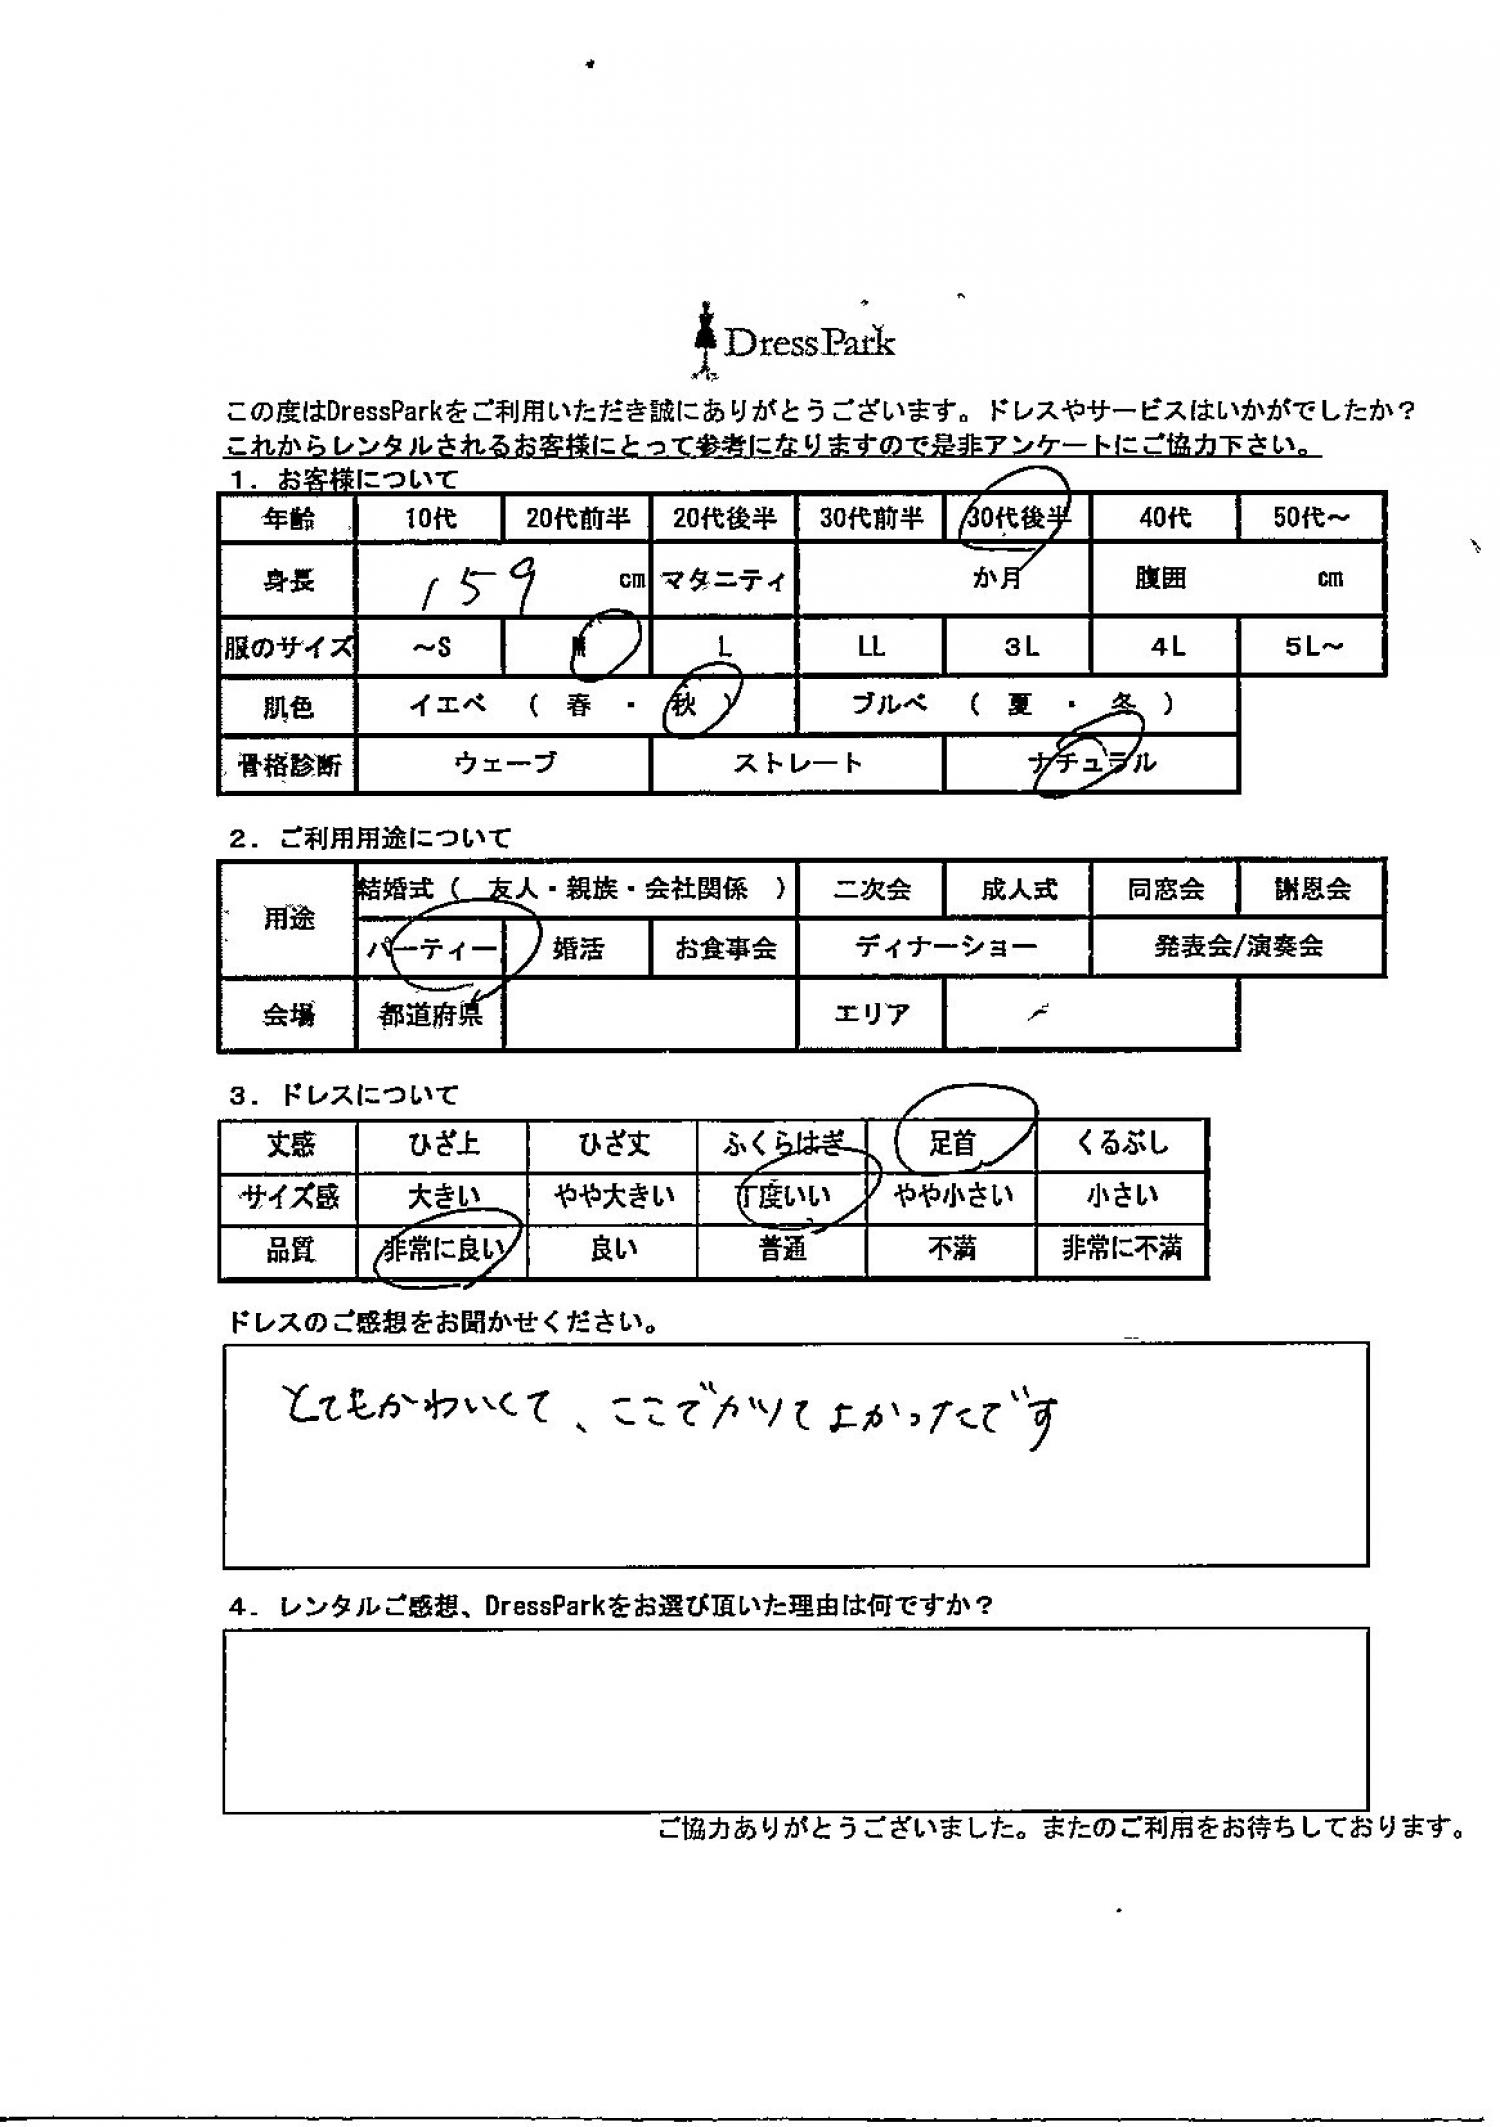 DressPark
この度はDressParkをご利用いただき誠にありがとうございます。ドレスやサービスはいかがでしたか？
これからレンタルされるお客様にとって参考になりますので是非アンケートにご協力下さい。
１．お客様について
年齢 10代 20代前半 20代後半 30代前半 30代後半 40代 50代～
身長 159 cm マタニティ か月 腹囲 cm
服のサイズ ～S M L LL 3L 4L 5L～
肌色 イエベ （ 春 ・ 秋 ） ブルベ （ 夏 ・ 冬 ）
骨格診断 ウェーブ ストレート ナチュラル
２．ご利用用途について
用途 結婚式（ 友人・親族・会社関係 ） 二次会 成人式 同窓会 謝恩会
パーティー 婚活 お食事会 ディナーショー 発表会/演奏会
会場 都道府県 エリア
３．ドレスについて
丈感 ひざ上 ひざ丈 ふくらはぎ 足首 くるぶし
サイズ感 大きい やや大きい 丁度いい やや小さい 小さい
品質 非常に良い 良い 普通 不満 非常に不満
ドレスのご感想をお聞かせください。
とてもかわいくて、ここでカリてよかったです
４．レンタルご感想、DressParkをお選び頂いた理由は何ですか？
ご協力ありがとうございました。またのご利用をお待ちしております。